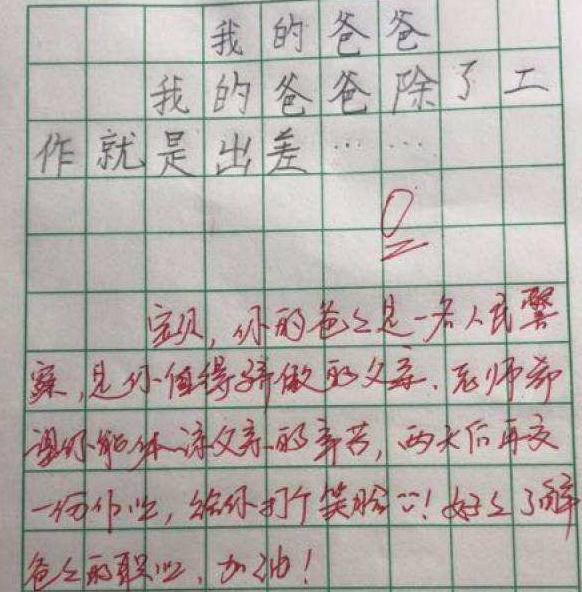 我的爸爸
我的爸爸除了工
作就是出差……
0
宝贝，你的爸々是一名人民警
察，是你值得骄傲的父亲。老师希
望你能体谅父亲的辛苦，两天后再交
一份作业，给你打个笑脸！好々了解
爸々的职业，加油！